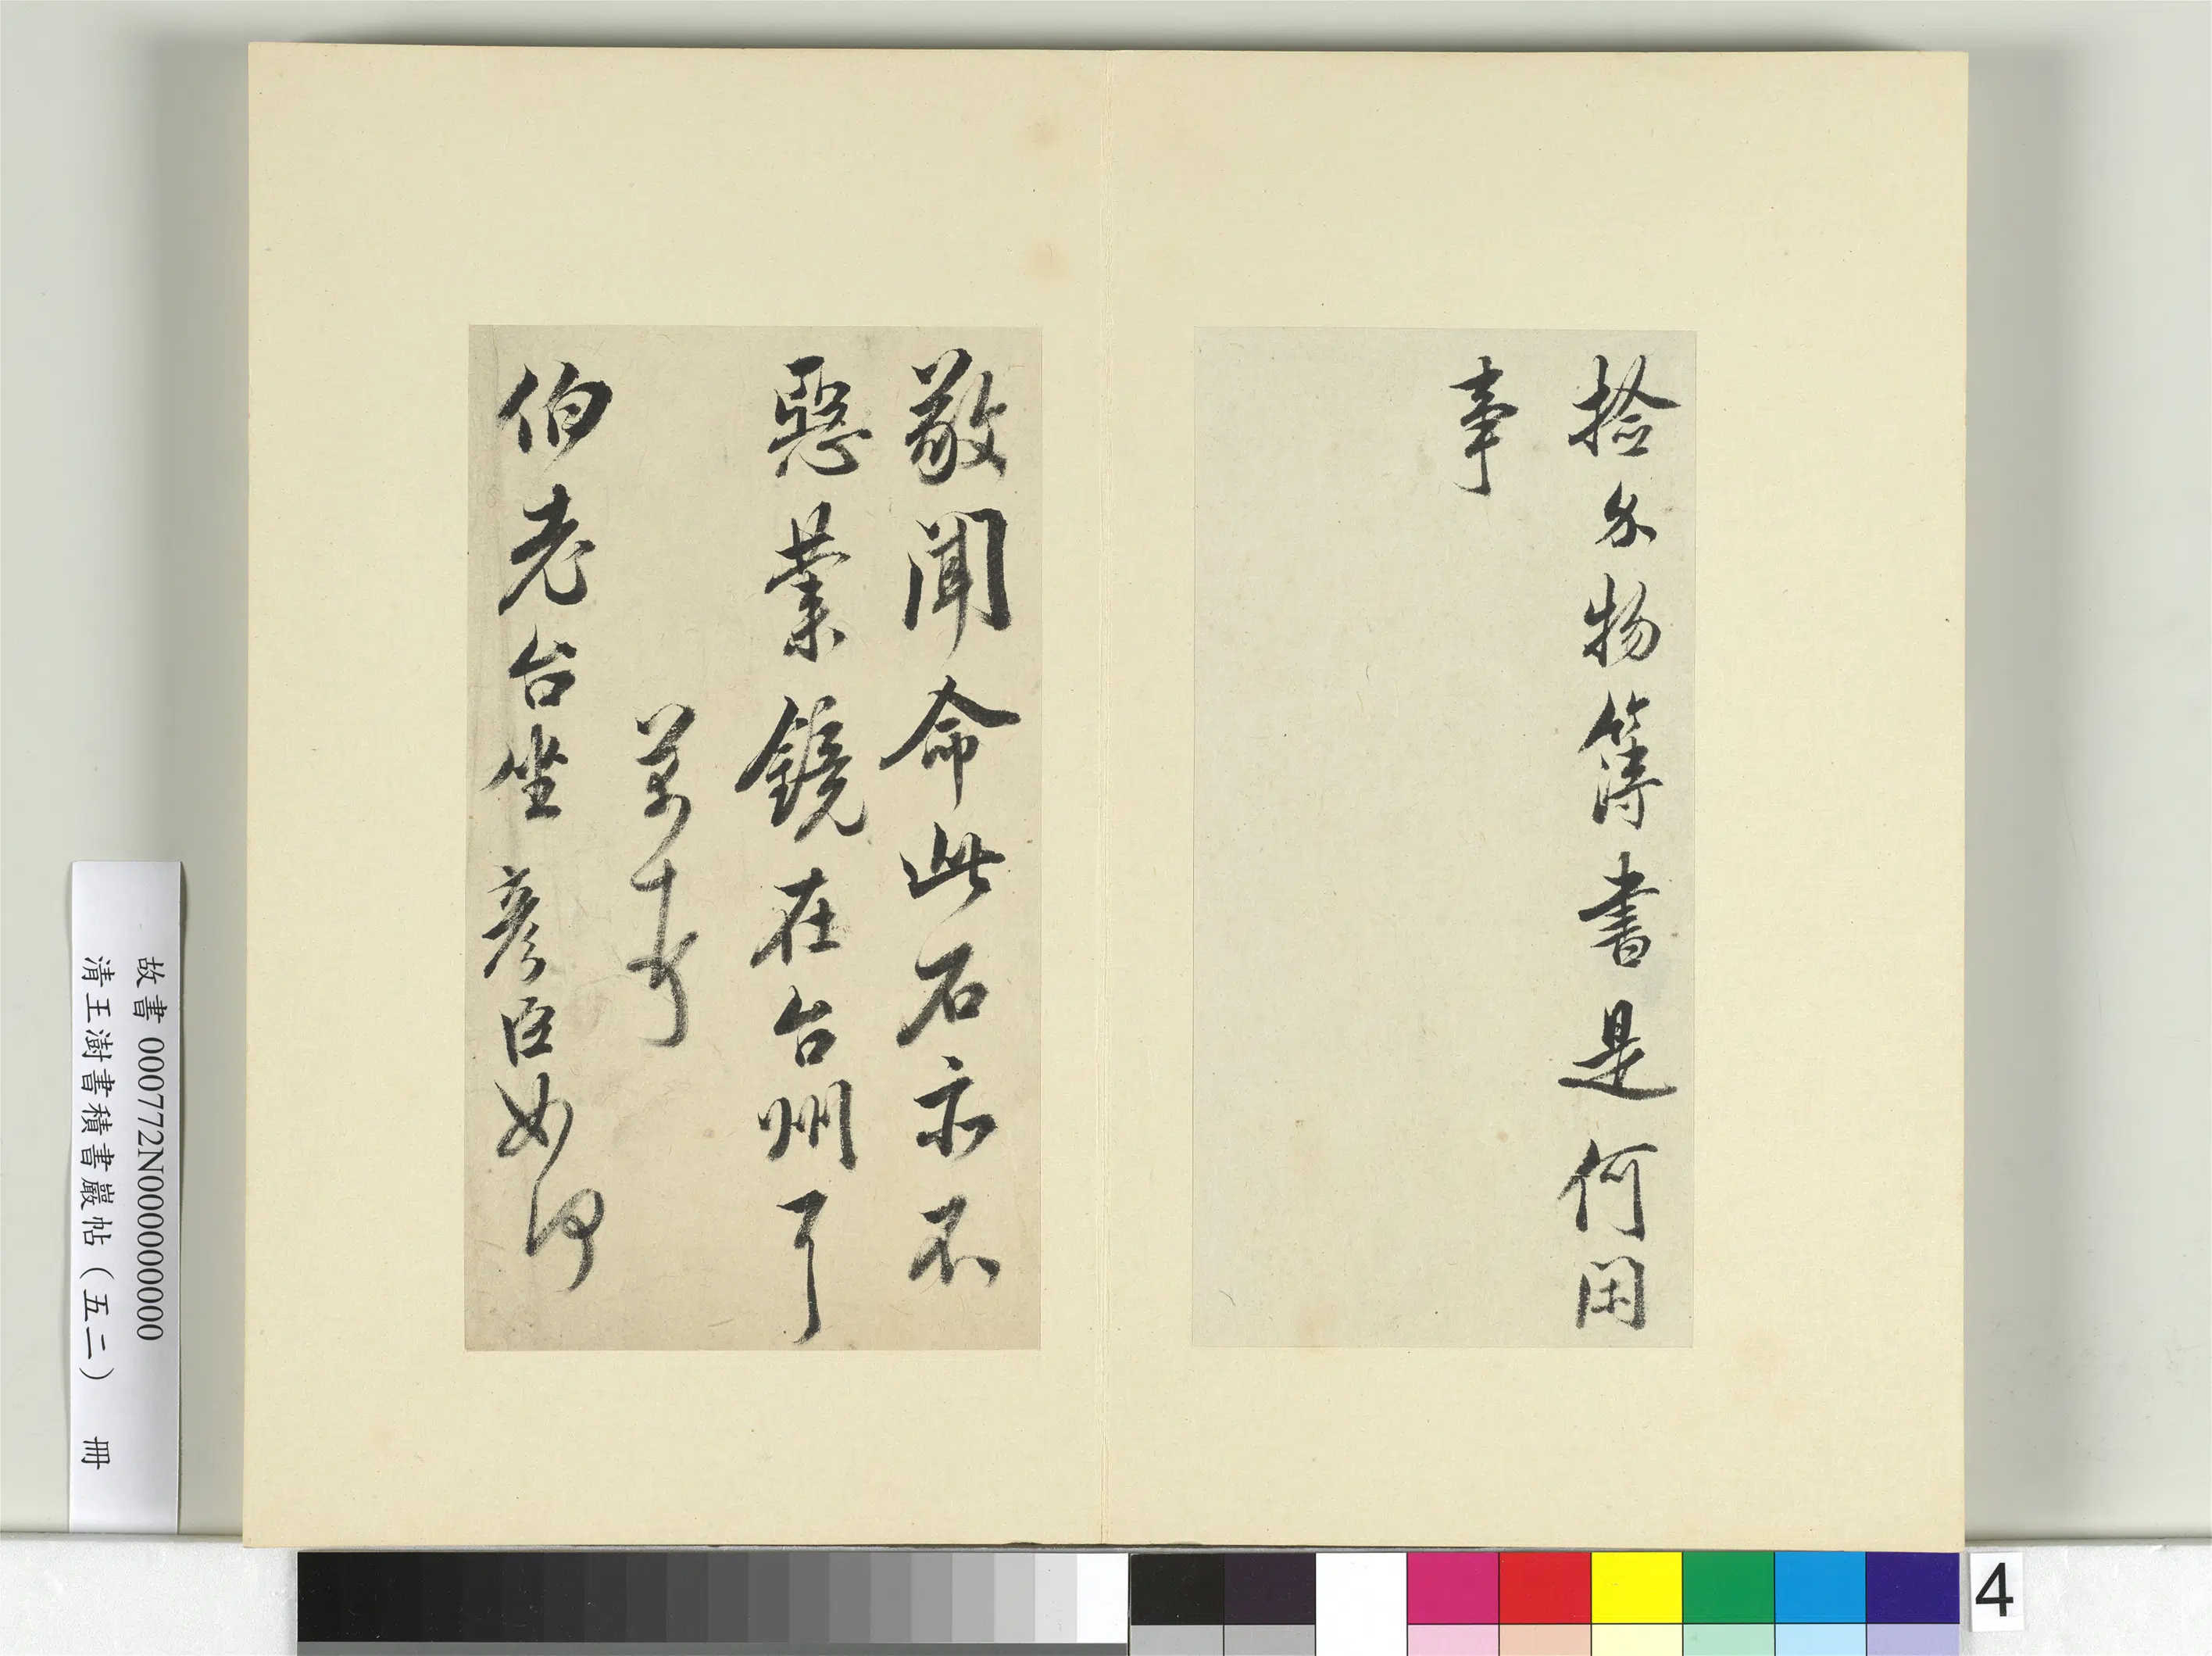 捡尔物簿書是何用
事
敬聞命此石亦不
惡業鏡在台州了
芾
伯老台坐 彦臣如何
故書 000772N000000000
清王澍書積書巖帖（五二） 冊
4